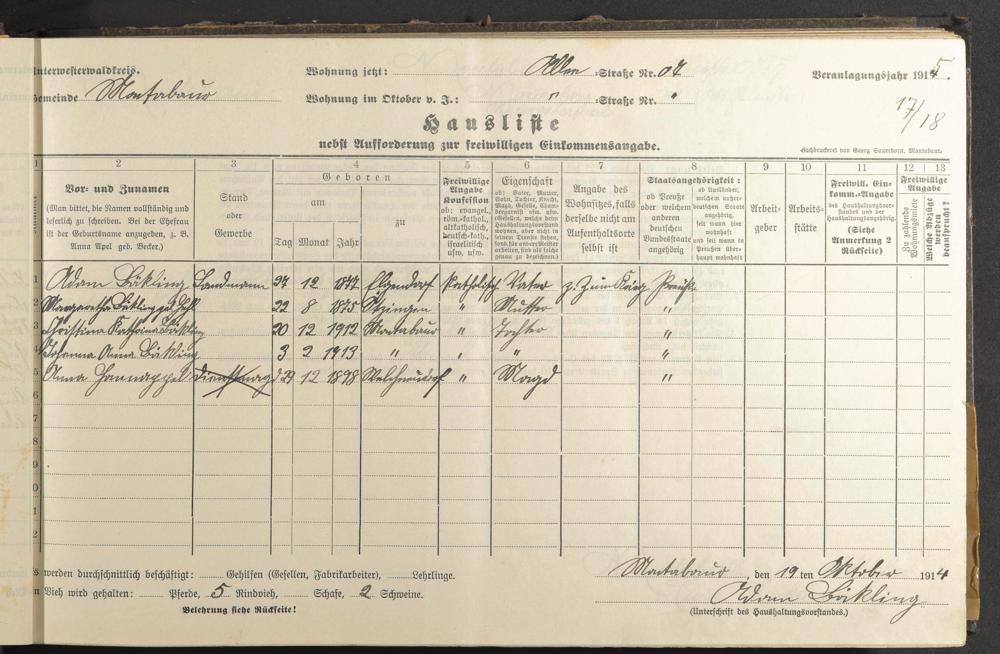 Unterwesterwaldkreis.
Wohnung jetzt: Allee Straße Nr. 
Veranlagungsjahr 1915.
Gemeinde Montabaur
Wohnung im Oktober v. J.: " Straße Nr. "
17/18
Hausliste
nebst Aufforderung zur freiwilligen Einkommensangabe.
Buchdruckerei von Georg Sauerborn, Montabaur.
1 2 3 4 5 6 7 8 9 10 11 12 13
Vor- und Zunamen
(Man bittet, die Namen vollständig und
leserlich zu schreiben. Bei der Ehefrau
ist der Geburtsname anzugeben, z. B.
Anna Apel geb. Becker.)
Stand
oder
Gewerbe
Geboren
am
zu
Tag Monat Jahr
Freiwillige
Angabe
Konfession
ob: evangel.,
röm.-kathol.,
altkatholisch,
deutsch-kath.,
israelitisch
usw. usw.
Eigenschaft
ob: Vater, Mutter,
Sohn, Tochter, Knecht,
Magd, Geselle,
Angabe des
Wohnsitzes, falls
derselbe nicht am
Aufenthaltsorte
selbst ist
Staatsangehörigkeit:
ob Preuße
oder welchen
anderen
deutschen
Bundesstaate
angehörig
ob Ausländer,
welchem außer-
deutschen Staate
angehörig,
seit wann hier
wohnhaft
und seit wann in
Preußen über-
haupt wohnhaft
Arbeit-
geber
Arbeits-
stätte
Freiwill. Ein-
komm.-Angabe
des Haushaltungsvor-
standes und der
Haushaltungsangehörig.
(Siehe
Anmerkung 2
Rückseite)
Freiwillige
Angabe
Zu zahlende
Wohnungsmiete
Welche Abzüge
werden
beansprucht?
1 Adam Bäkling Landmann 27 12 1877 Elgendorf katholisch Vater z. Z. im Krieg Preuße
2 Margaretha Bäkling geb. 22 8 1875 " Mutter "
3 Christina Katharina Bäkling 20 12 1912 Montabaur " Tochter "
4 Johanna Anna Bäkling 3 2 1913 " " " "
5 Anna Hannappel Dienstmagd 29 12 1898 Welschneudorf " Magd "
6
7
8
9
0
1
2
Es werden durchschnittlich beschäftigt: Gehilfen (Gesellen, Fabrikarbeiter), Lehrlinge.
An Vieh wird gehalten: Pferde, 5 Rindvieh, Schafe, 2 Schweine.
Belehrung siehe Rückseite!
Montabaur, den 19 ten Oktober 1914
Adam Bäkling
(Unterschrift des Haushaltungsvorstandes.)